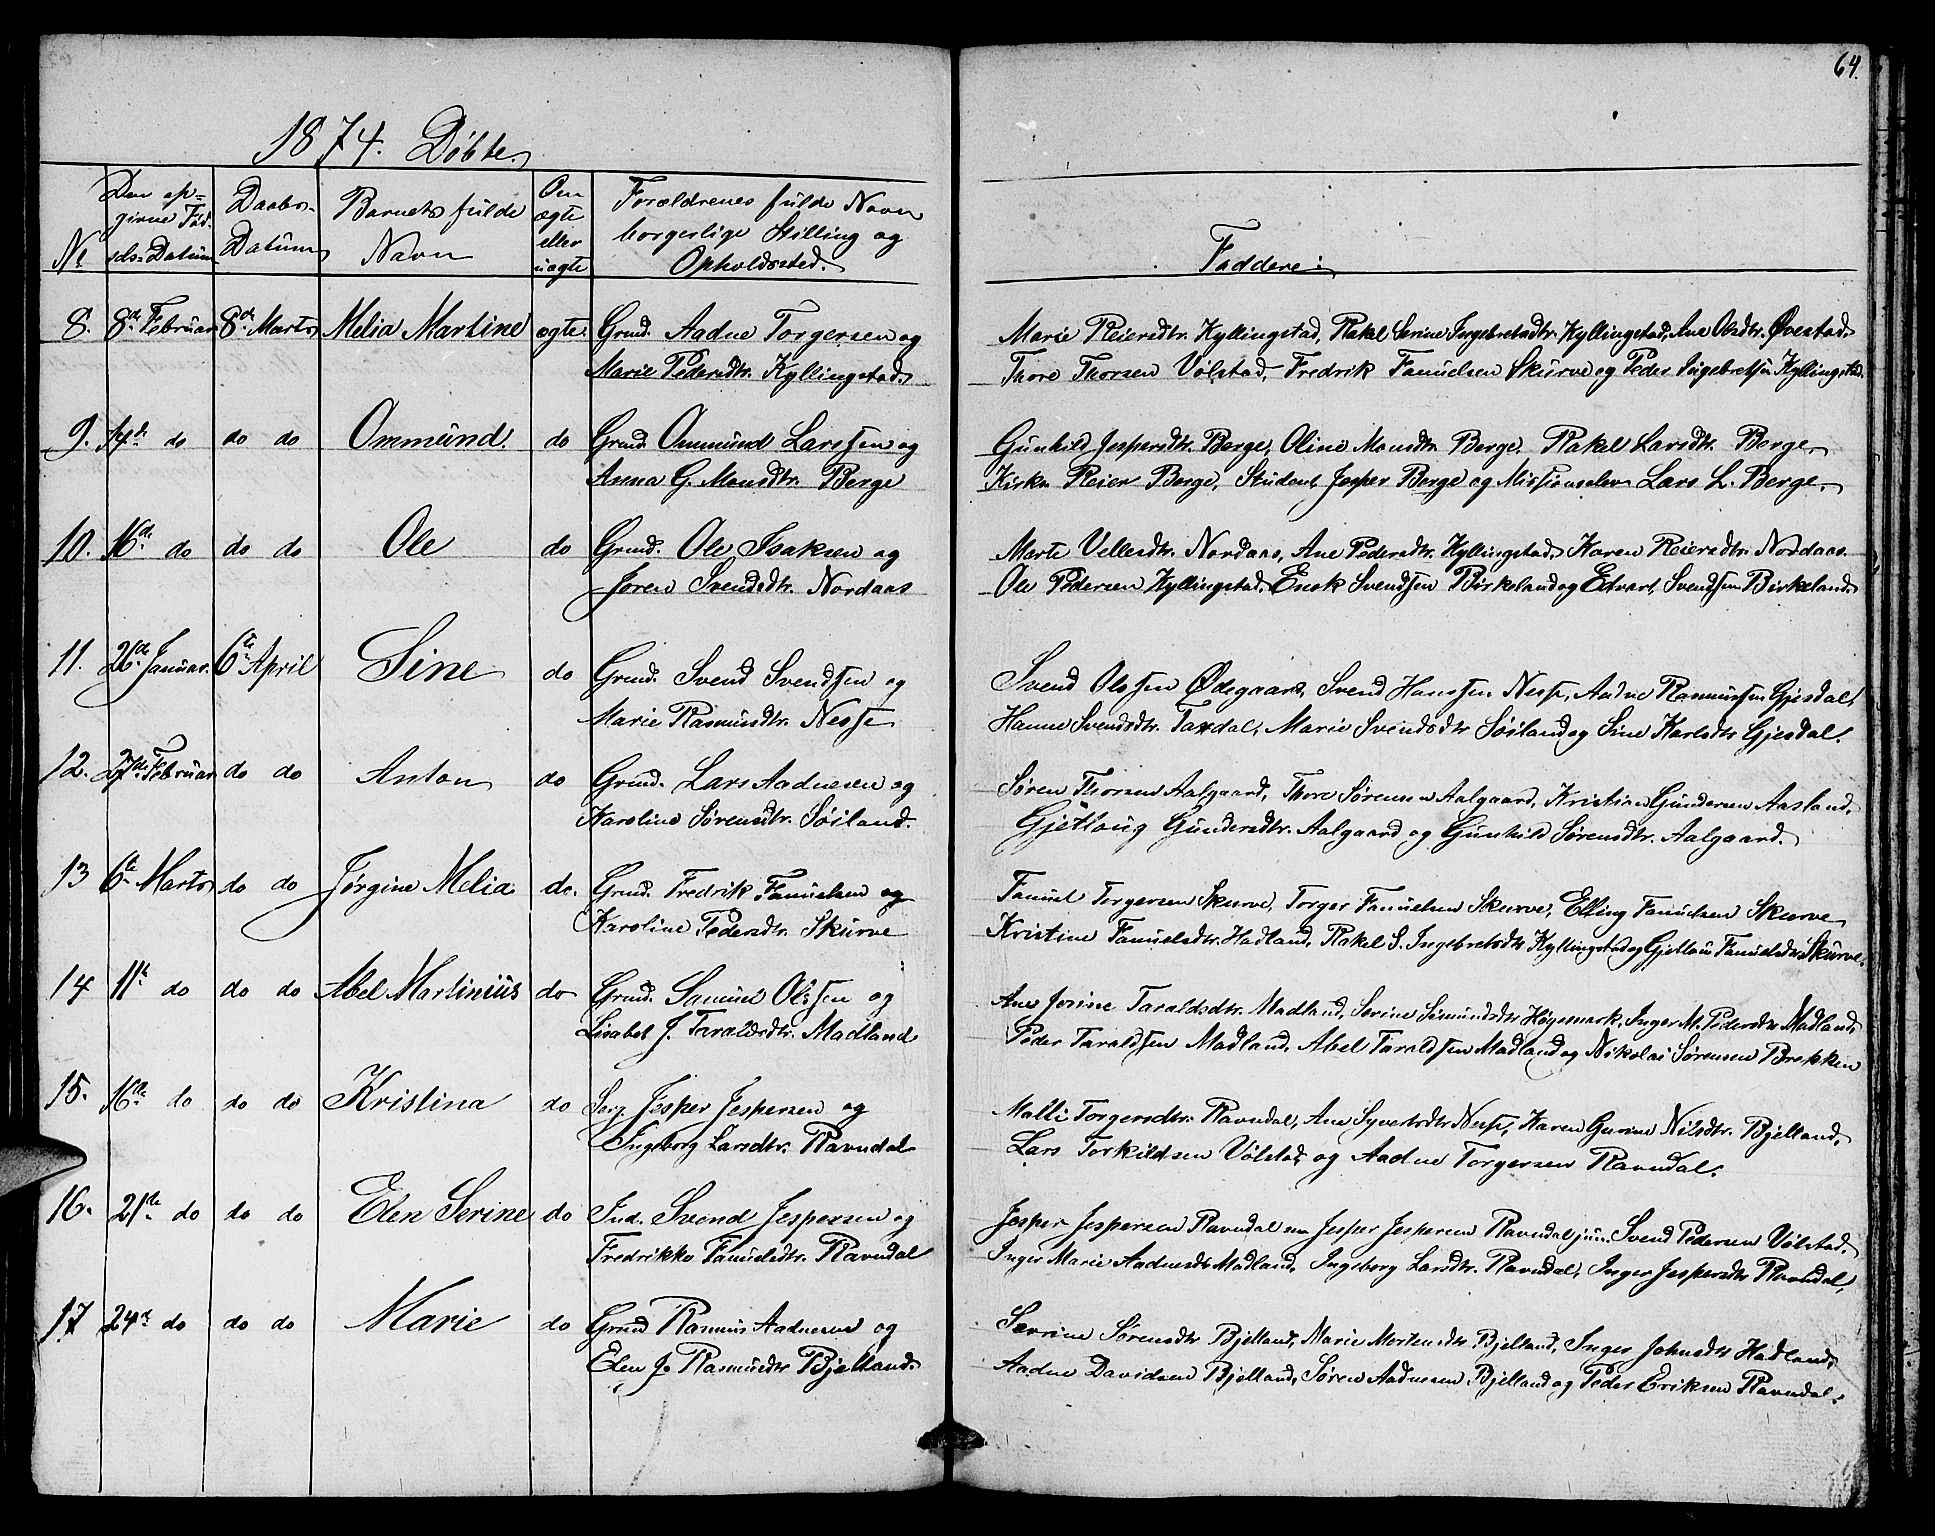 64.
1874. Døbte.
No
Den op=
givne Fød-
sels-Datum
Daabs-
Datum
Barnets fulde
Navn
Om
ægte
eller
uægte
Forældrenes fulde Navn
borgerlige Stilling og
Opholdssted.
Faddere:
8. 8de Februar 8de Marts Melia Martine ægte. Grmd. Aadne Torgersen og
Marie Pedersdtr. Kyllingstad
Marie Reiersdtr. Kyllingstad, Rakel Serine Ingebretsdtr. Kyllingstad, Ane Olsdtr. Øvestad
Thore Thorsen Vølstad, Fredrik Fanuelsen Skurve og Peder Ingebretsen Kyllingstad.
9. 14de do do do Ommund. do Grmd. Ommund Larssen og
Anna G. Monsdtr. Berge
Gunhild Jespersdtr. Berge, Oline Monsdtr. Berge. Rakel Larsdtr. Berge,
Kirks. Reier Berge, Student Jesper Berge og Missionselev Lars L. Berge.
10. 16de do do do Ole do Grmd. Ole Isaksen og
Joren Svendsdtr. Nordaas
Marte Vellesdtr. Nordaas, Ane Pedersdtr. Kyllingstad, Karen Reiersdtr. Nordaas.
Ole Pedersen Kyllingstad, Enok Svendsen Birkeland og Edvart Svendsen Birkeland.
11. 26de Januar. 6te April Sine do Grmd. Svend Svendsen og
Marie Rasmusdtr. Nesse
Svend Olssen Ødegaard, Svend Hanssen Nesse, Aadne Rasmussen Gjesdal,
Hanne Svendsdtr. Taxdal, Marie Svendsdtr Søiland og Sine Karlsdtr Gjesdal.
12. 27de Februar do do Anton do Grmd. Lars Aadnesen og
Karoline Sørensdtr. Søiland.
Søren Thorsen Aalgaard, Thore Sørensen Aalgaard, Kristian Gundersen Aasland,
Gjetloug Gundersdtr. Aalgaard og Gunhild Sørensdtr. Aalgaard.
13 6te Marts do do Jørgine Melia do. Grmd. Fredrik Fanuelsen og
Karoline Pedersdtr. Skurve
Fanuel Torgersen Skurve, Torger Fanuelsen Skurve, Elling Fanuelsen Skurve
Kristine Fanuelsdtr. Hadland, Rakel S. Ingebretsdtr Kyllingstad og Gjetlau Fanuelsdtr. Skurve.
14 11te do do do Abel Martinius do Grmd. Samuel Olssen og
Lisabet J. Taraldsdtr. Madland
Ane Josine Taraldsdtr. Madland, Serine Simundsdtr Høgemark, Inger M. Pedersdtr Madland,
Peder Taraldsen Madland, Abel Taraldsen Madland og Nikolai Sørensen Brekken
15. 16de do do do Kristina do Jesper Jespersen og
Ingeborg Larsdtr. Ravndal
Malli Torgersdtr. Ravndal, Ane Syvertsdtr Nesse, Karen Gurine Nilsdtr. Bjelland,
Lars Torkildsen Vølstad og Aadne Torgersen Ravndal.
16. 21de do do do Elen Serine do Ind. Svend Jespersen og
Fredrikke Fanuelsdtr. Ravndal
Jesper Jespersen Ravndal sen Jesper Jespersen Ravndal jun. Svend Pedersen Vølstad.
Inger Marie Aadnesdtr Madland, Ingeborg Larsdtr. Ravndal, Inger Jespersdtr Ravndal,
17 24de do do do Marie do Grmd Rasmus Aadnesen og
Elen J. Rasmusdtr Bjelland.
Severine Sørensdtr Bjelland, Marie Mortensdtr Bjelland, Inger Johnsdtr Hadland,
Aadne Davidsen Bjelland, Søren Aadnesen Bjelland og Peder Eriksen Ravndal.